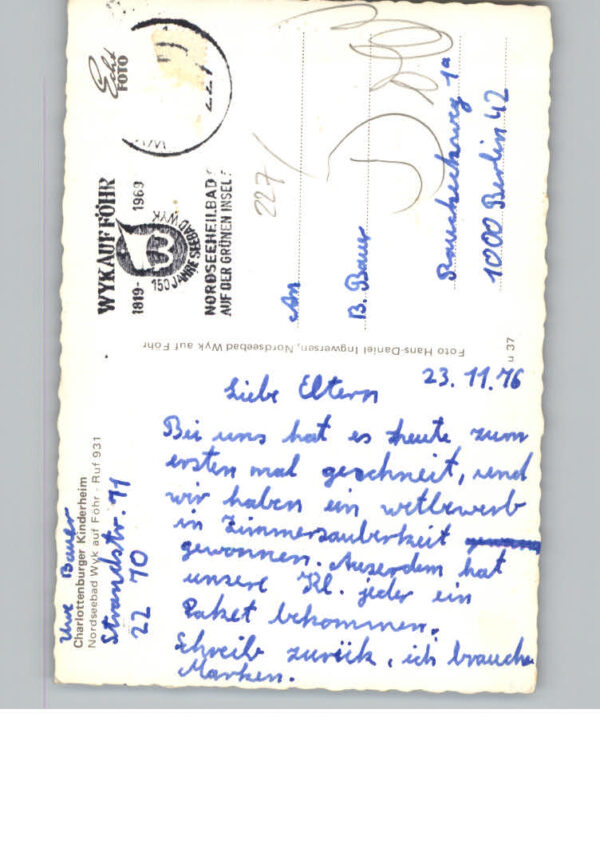 Uwe Bauer
Charlottenburger Kinderheim
Nordseebad Wyk auf Föhr · Ruf 931
Strandstr. 71
22 70
23.11.76
Liebe Eltern
Bei uns hat es heute zum
ersten mal geschneit, und
wir haben ein wetbewerb
in Zimmersauberkeit
gewonnen. Auserdem hat
unsere Kl. jeder ein
Paket bekommen.
Schreib zurück, ich brauche
Marken.
Foto Hans-Daniel Ingwersen, Nordseebad Wyk auf Föhr
u 37
Echt
FOTO
WYK AUF FÖHR
1819-
1969
150 JAHRE SEEBAD WYK
NORDSEEHEILBAD
AUF DER GRÜNEN INSEL
227/
An
B. Bauer
1a
1000 Berlin 42